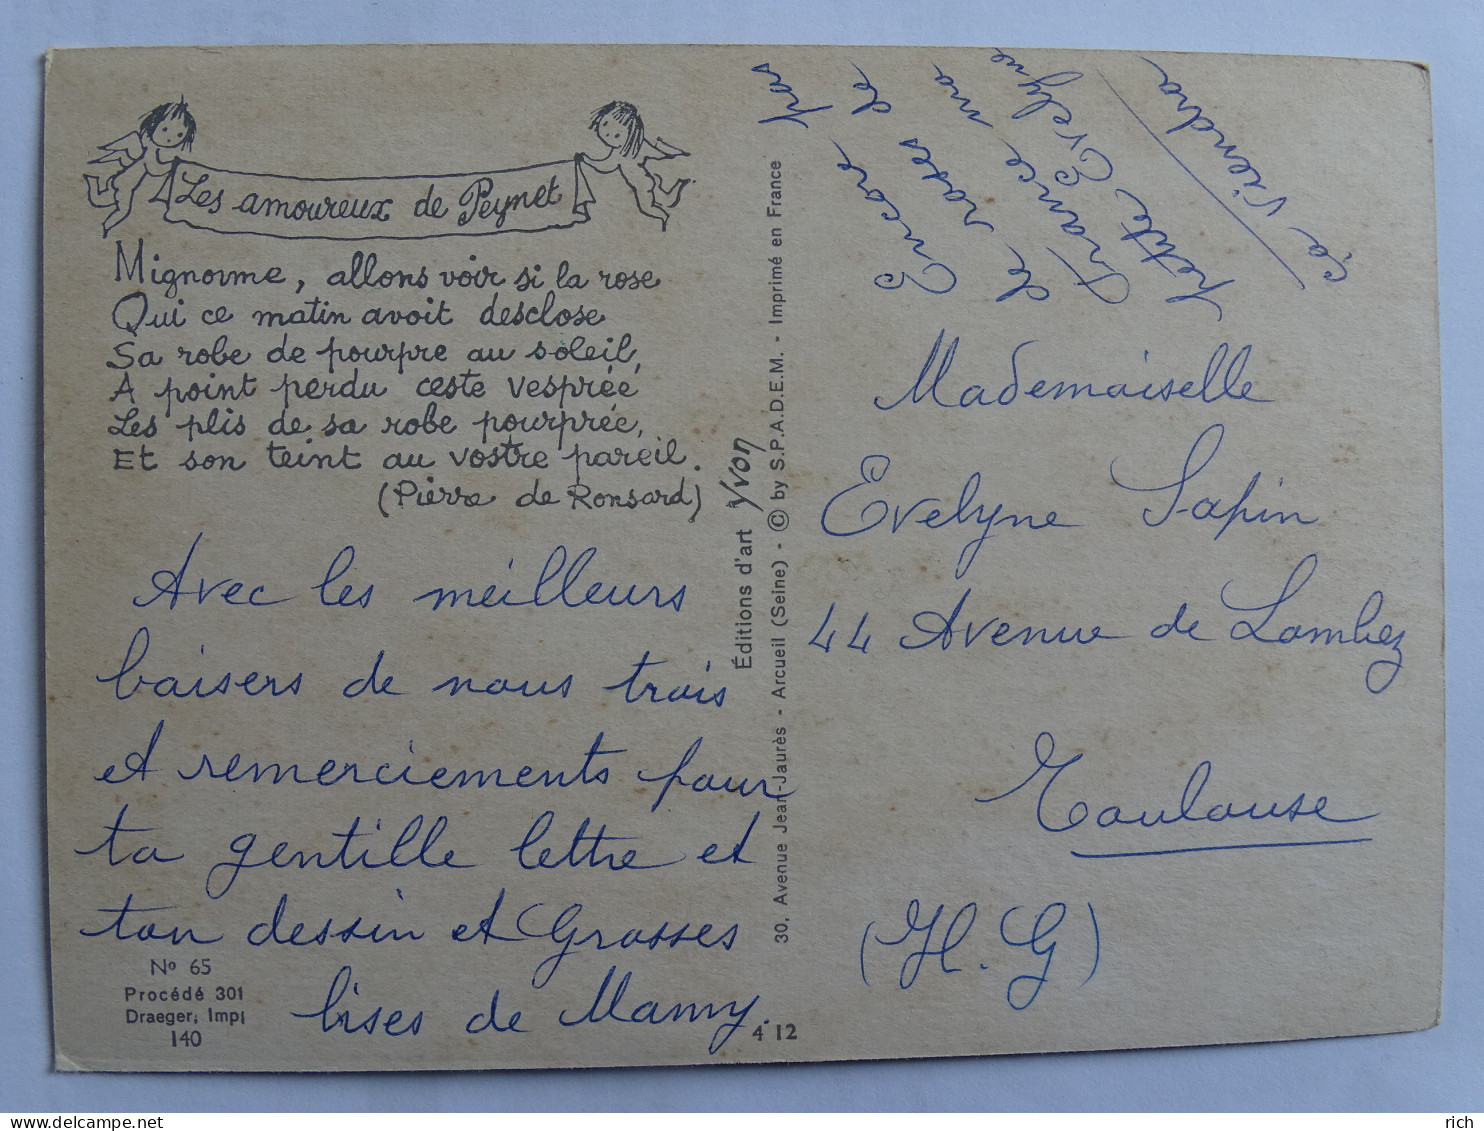 Les amoureux de Peynet
Mignonne, allons voir si la rose
Qui ce matin avoit desclose
Sa robe de pourpre au soleil,
A point perdu ceste vesprée
Les plis de sa robe pourprée,
Et son teint au vostre pareil.
(Pierre de Ronsard)
Avec les meilleurs
baisers de nous trois
et remerciements pour
ta gentille lettre et
ton dessin et Grosses
bises de Mamy.
No 65
Procédé 301
Draeger, Imp.
140
4 12
Éditions d'art Yvon
30, Avenue Jean-Jaurès - Arcueil (Seine) - © by S.P.A.D.E.M. - Imprimé en France
Encore pas
de roses de
France ma
petite Evelyne
ça viendra
Mademoiselle
Evelyne Sapin
44 Avenue de Lombez
Toulouse
(H. G)
rich
delcampe.net